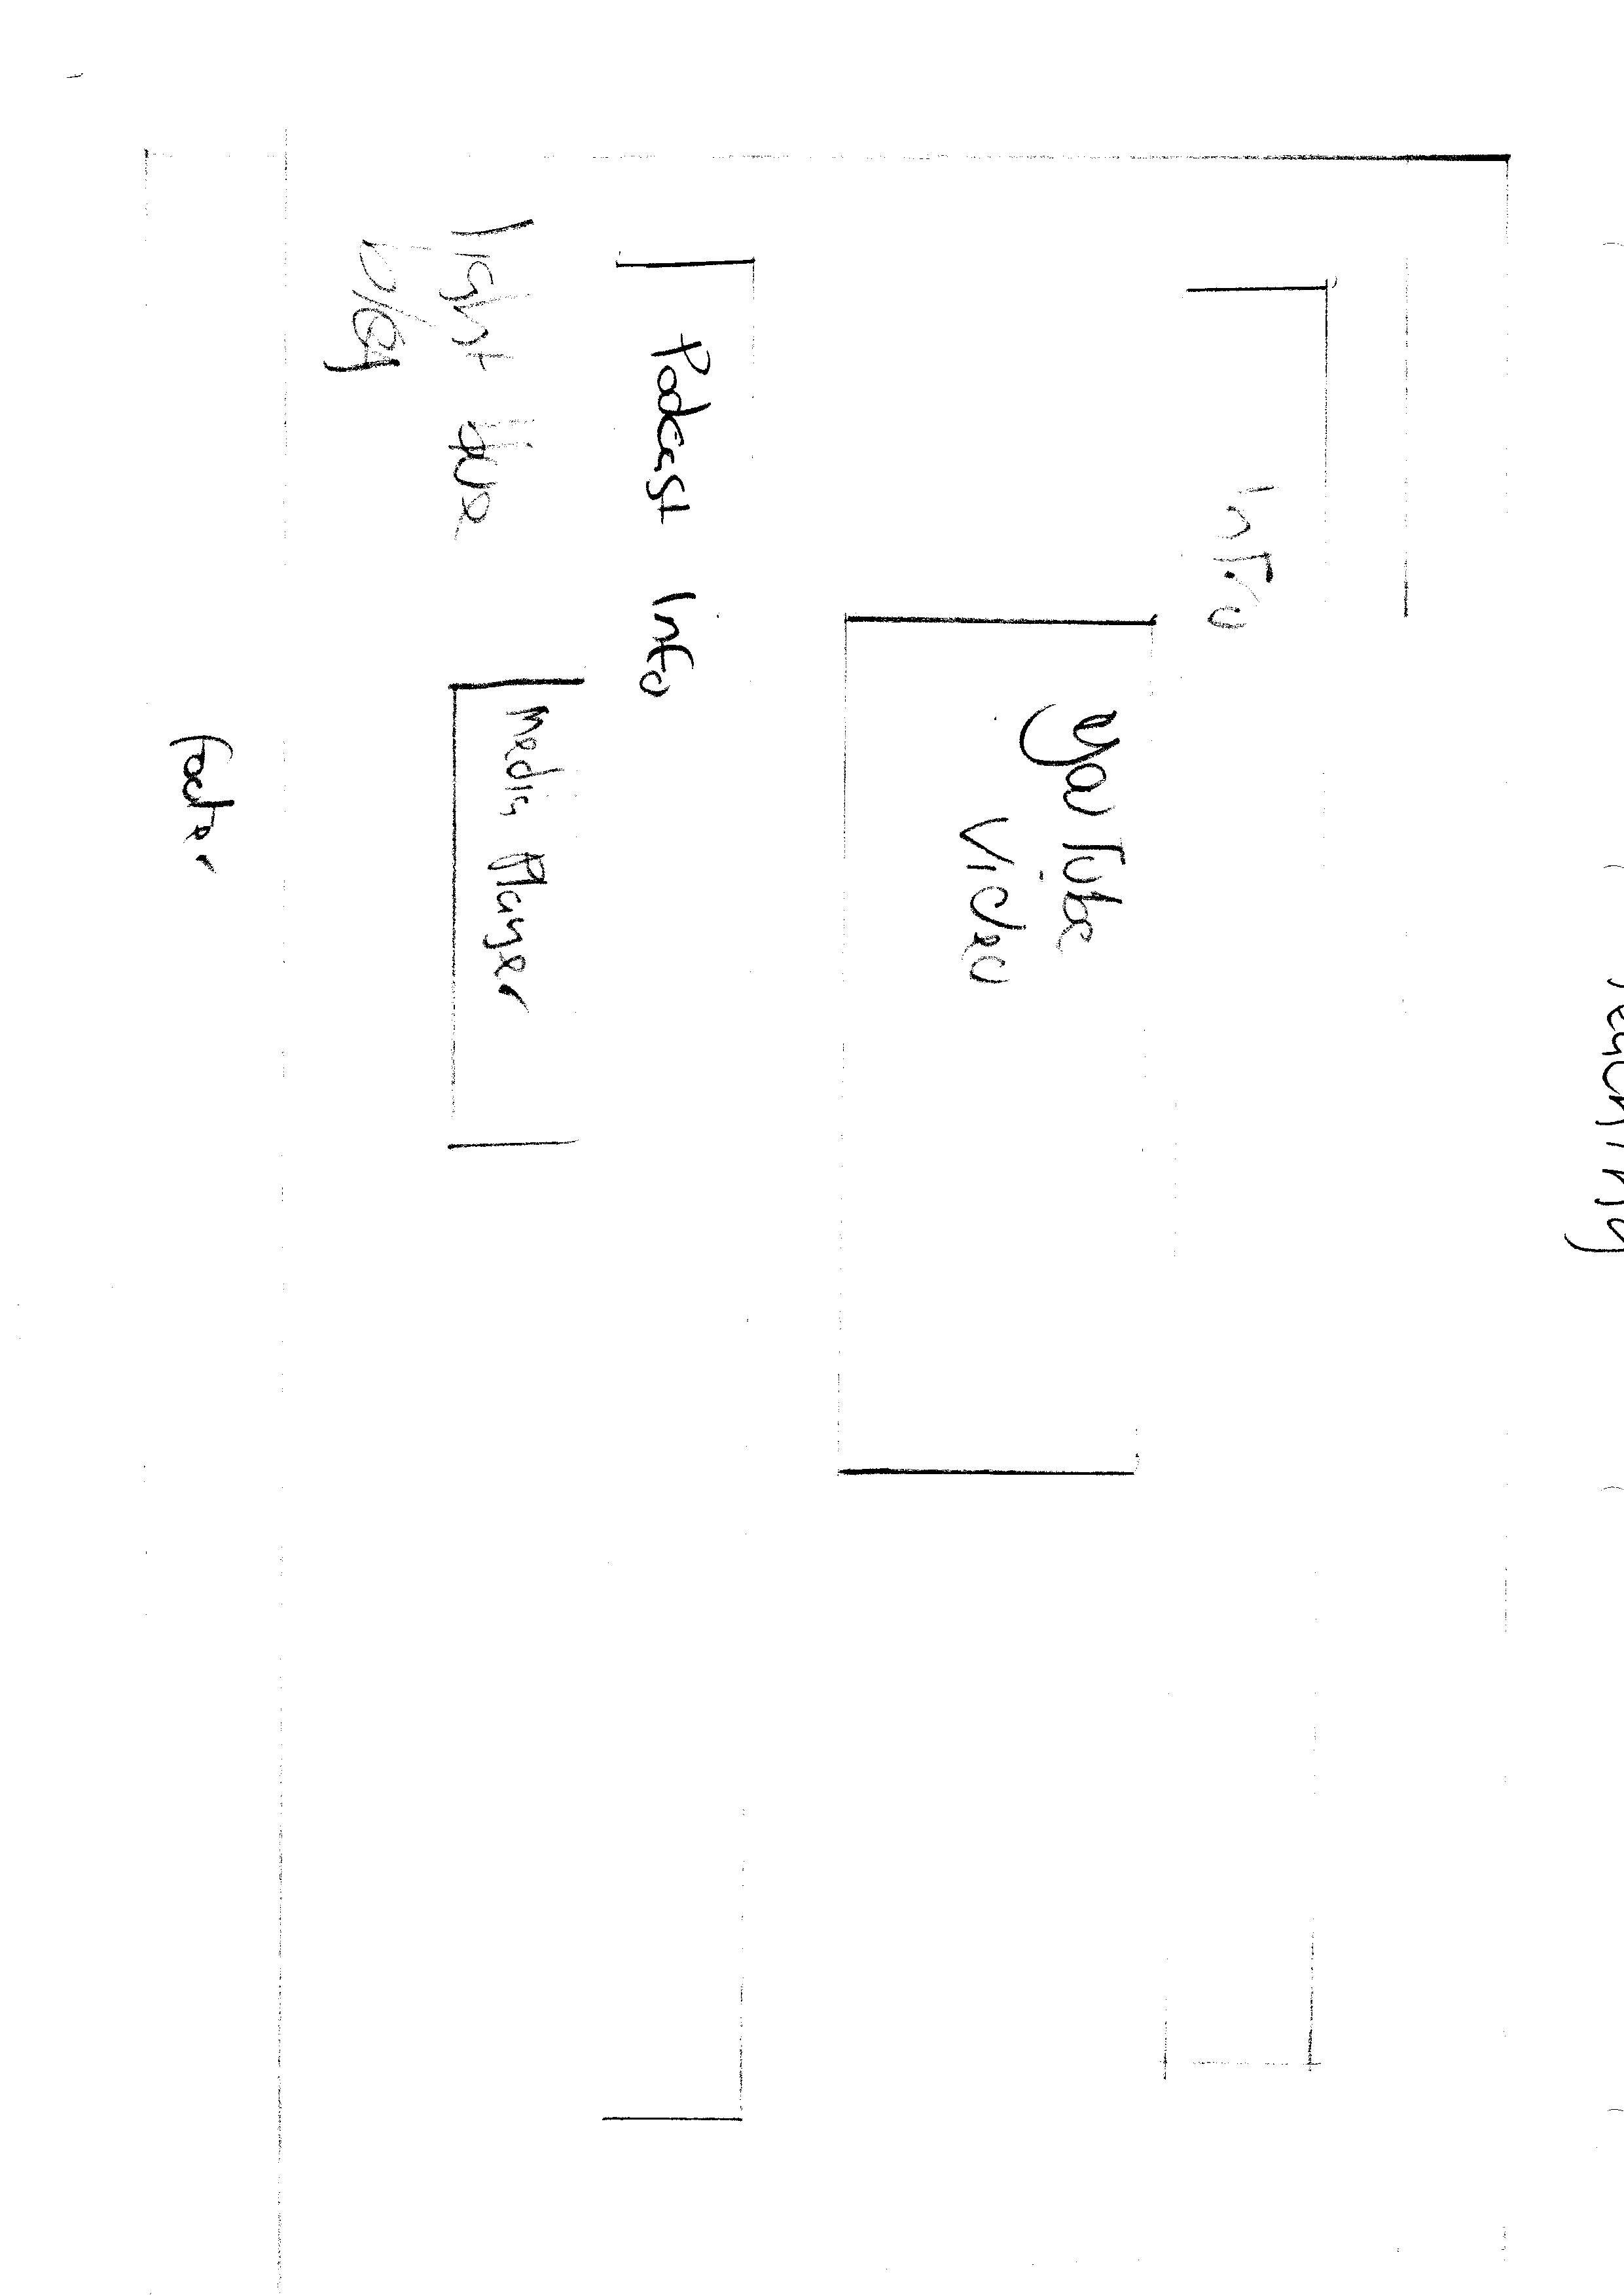 Teaching
Intro
YouTube
Video
Podcast Info
Media Player
light blue
b/g
footer